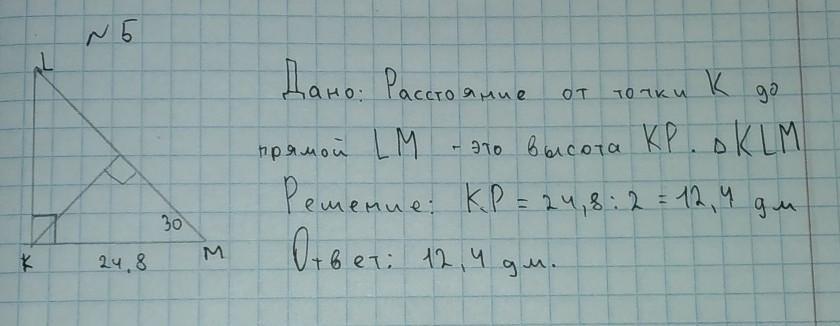 N 5
L
Дано: Расстояние от точки K до
прямой LM - это высота KP. △KLM
Решение: KP = 24,8 : 2 = 12,4 дм
30
K 24.8 M
Ответ: 12,4 дм.